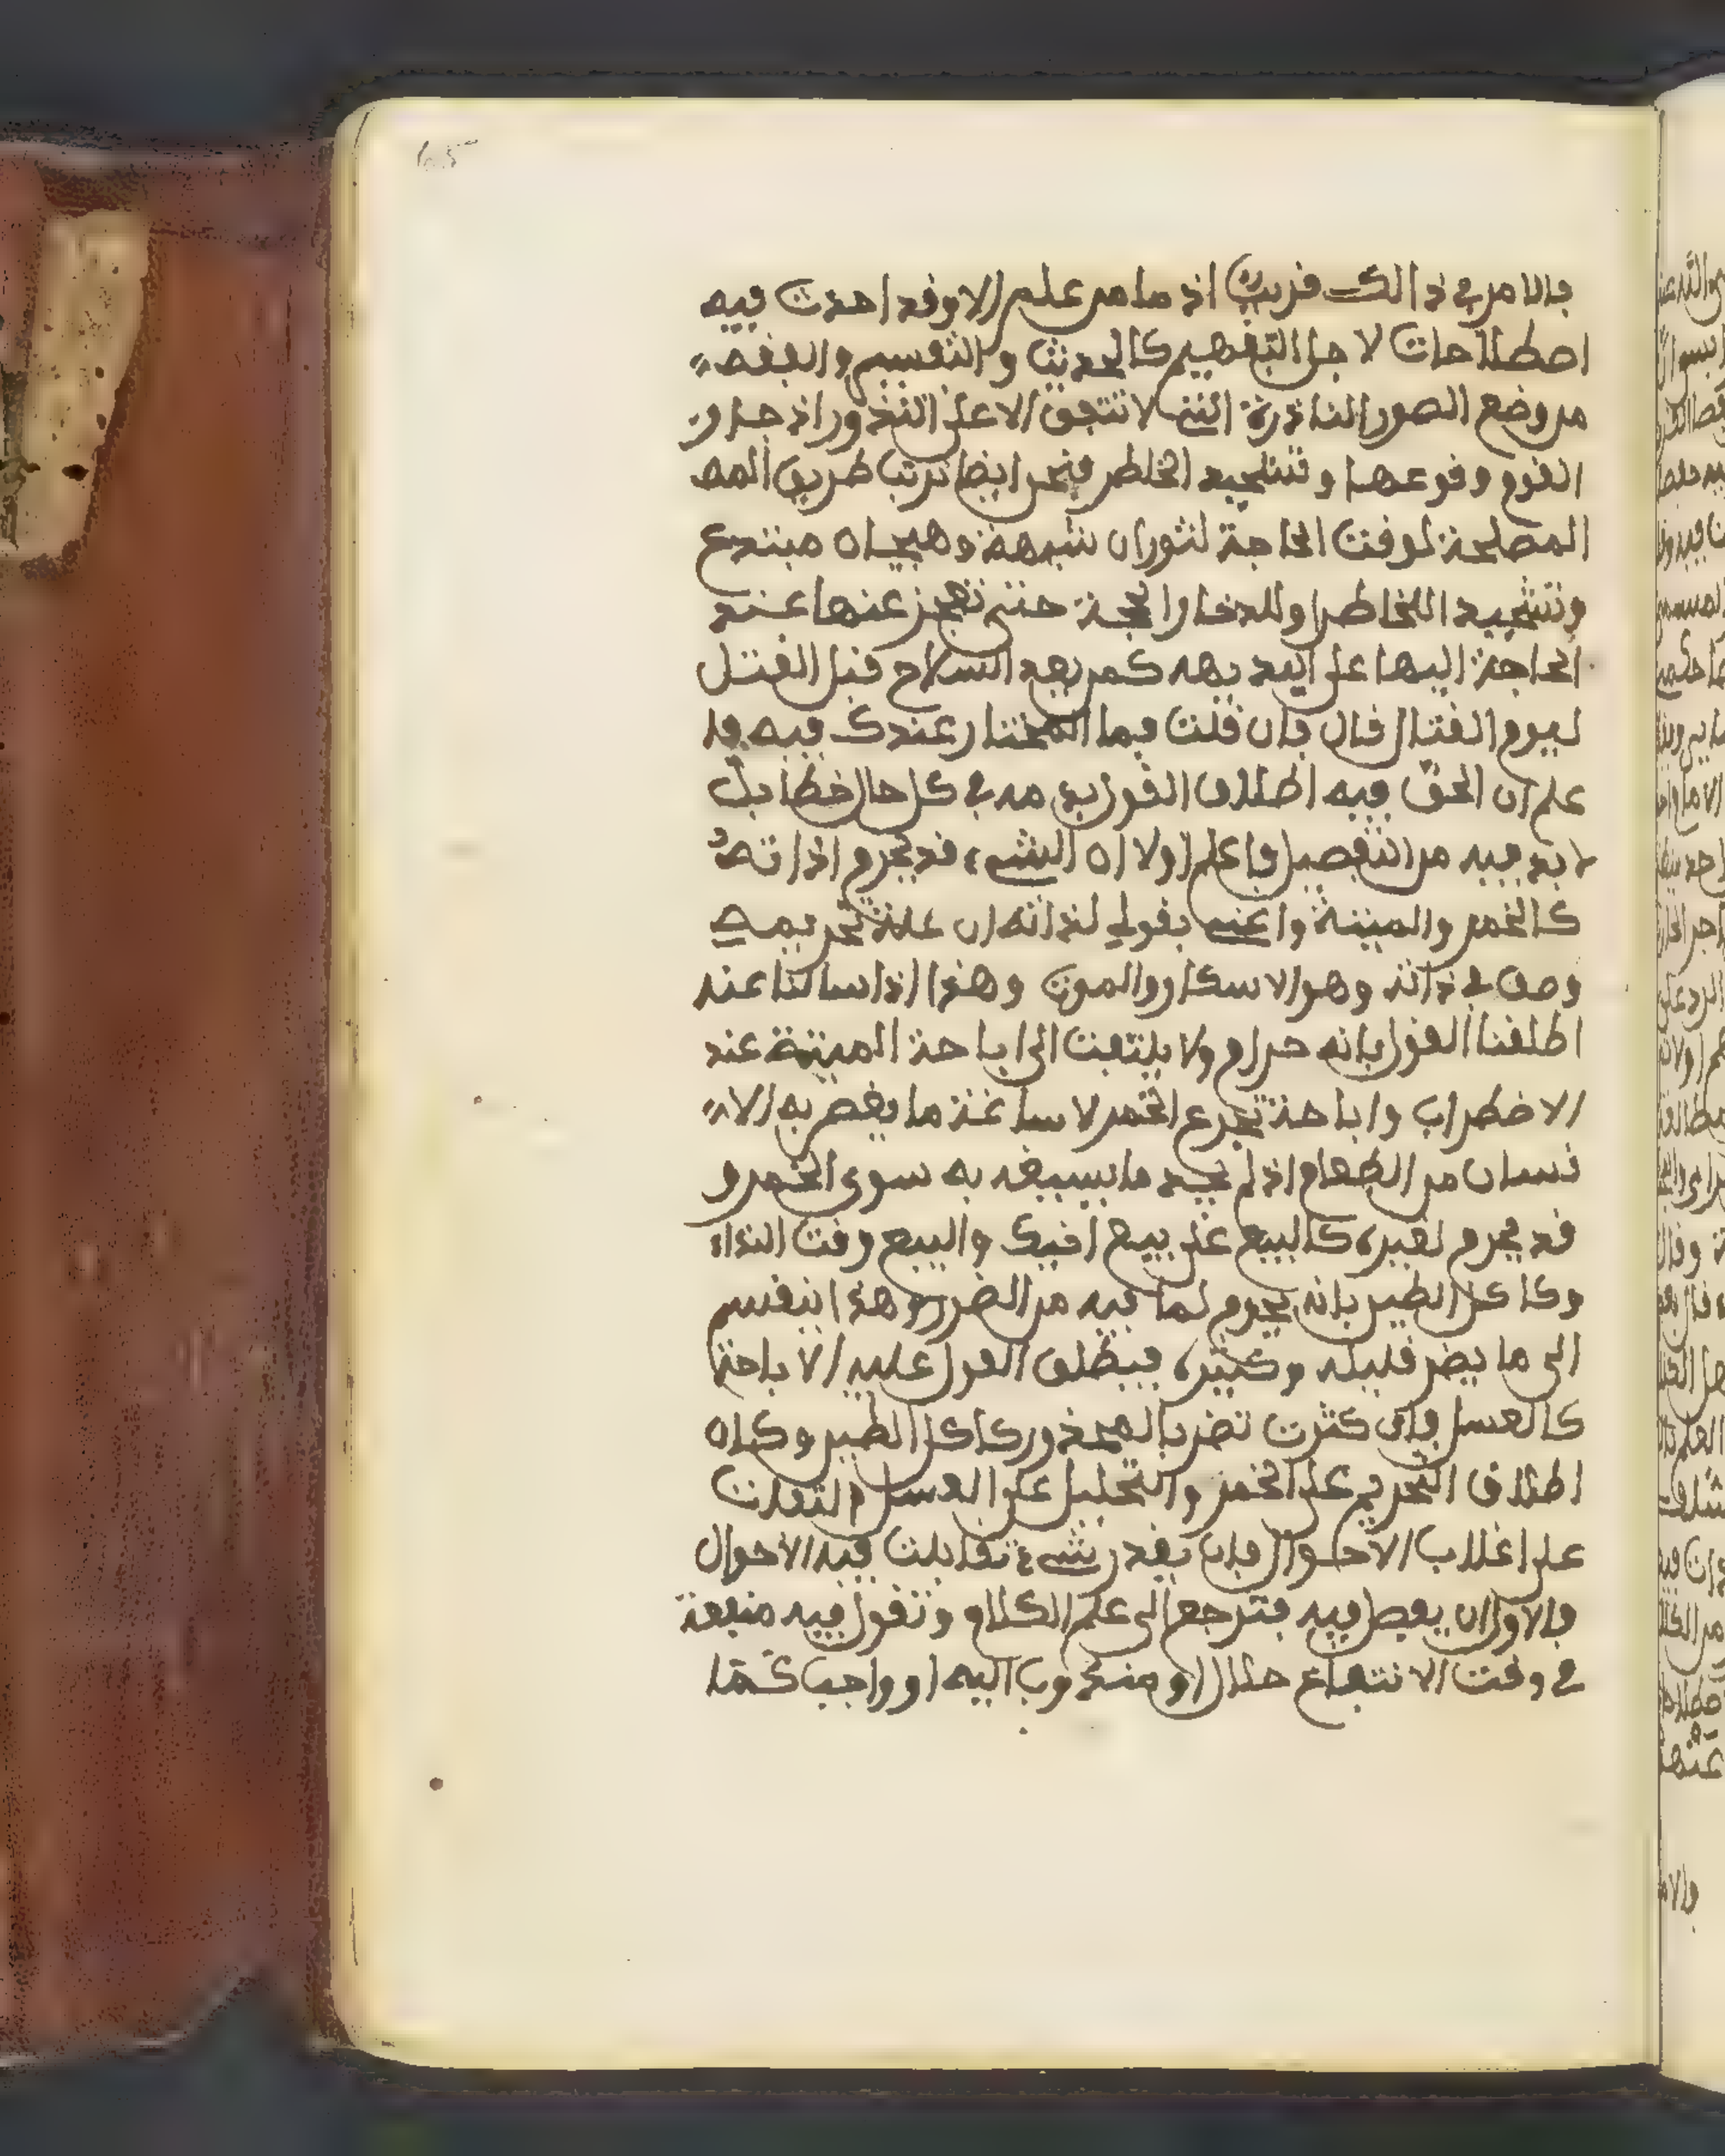 65
فالامر في ذالك قريب اذ ما من علم الا وقد احدث فيه
اصطلاحات لاجل التفهيم كالحديث والتفسير والفقه
من وضع الصور النادرة التي لا تتفق الا على النذور اذ جاز
القوم وقوعها وتشحيذ الخاطر فنحن ايضا نرتب طريق المص
المصلحة لوقت الحاجة لثوران شبهة وهيجان مبتدع
وتشحيذ الخاطر او لادخار الحجة حتى تعجز عنها عند
الحاجة اليها على البديهه كمن يعد السلاح قبل القتل
ليوم القتال قال فان قلت فما المختار عندك فيه فا
علم ان الحق فيه اطلاق القول بذمه في كل حال خطا بل
لا بد فيه من التفصيل فاعلم اولا ان الشيء قد يحرم اذاته
كالخمر والميتة واعني بقولي لذاته ان علة تحريمه
وصف في ذاته وهو الاسكار والموت وهذا اذا سالنا عنه
اطلقنا القول بانه حرام ولا يلتفت الى اباحة الميتة عند
الاضطراب واباحة تجرع الخمر لاساغة ما يغص به الا
نسان من الطعام اذ لم يجد ما يسيغه به سوى الخمر و
قد يحرم لغيره كالبيع على بيع اخيك والبيع وقت النداء
وكاكل الطين بانه يحرم لما فيه من الضرر وهذا ينقسم
الى ما يضر قليله وكثيره فيطلق القول عليه الاباحة
كالعسل فان كثرت تضر بالمحذور كاكل الطين وكان
اطلاق التحريم على الخمر والتحليل على العسل التفات
على اغلاب الاحوال فان بقدر شيء تقابلت فيه الاحوال
فالاولى ان يفصل فيه فترجع الى علم الكلام وتقول فيه منفعة
في وقت الانتفاع حلال او مندوب اليه او واجب كما